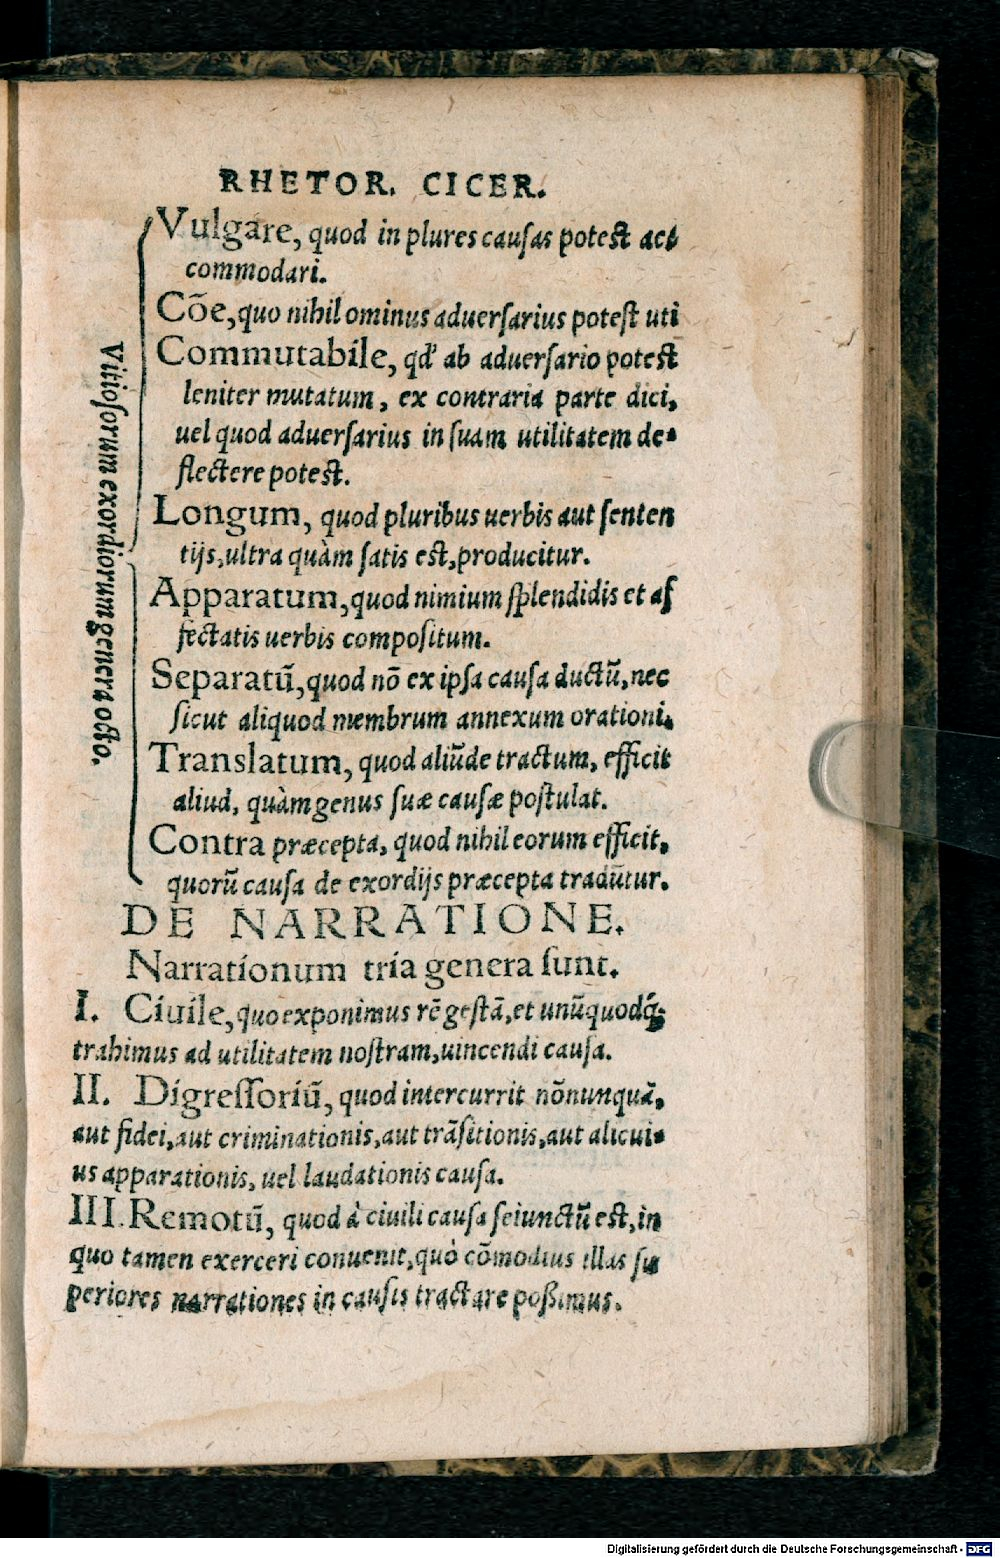 RHETOR. CICER.
Vitiosorum exordiorum genera octo.
Vulgare, quod in plures causas potest ac-
commodari.
Cōe, quo nihil ominus aduersarius potest uti
Commutabile, qd' ab aduersario potest
leniter mutatum, ex contraria parte dici,
uel quod aduersarius in suam utilitatem de-
flectere potest.
Longum, quod pluribus uerbis aut senten
tijs, ultra quàm satis est, producitur.
Apparatum, quod nimium splendidis et af
fectatis uerbis compositum.
Separatū, quod nō ex ipsa causa ductū, nec
sicut aliquod membrum annexum orationi.
Translatum, quod aliūde tractum, efficit
aliud, quàm genus suæ causæ postulat.
Contra præcepta, quod nihil eorum efficit,
quorū causa de exordijs præcepta tradūtur.
DE NARRATIONE.
Narrationum tria genera sunt.
I. Ciuile, quo exponimus rē gestā, et unūquodq́;
trahimus ad utilitatem nostram, uincendi causa.
II. Digressoriū, quod intercurrit nōnunquā,
aut fidei, aut criminationis, aut trāsitionis, aut alicui-
us apparationis, uel laudationis causa.
III. Remotū, quod à ciuili causa seiunctū est, in
quo tamen exerceri conuenit, quò cōmodius illas su
periores narrationes in causis tractare poßimus.
Digitalisierung gefördert durch die Deutsche Forschungsgemeinschaft - DFG